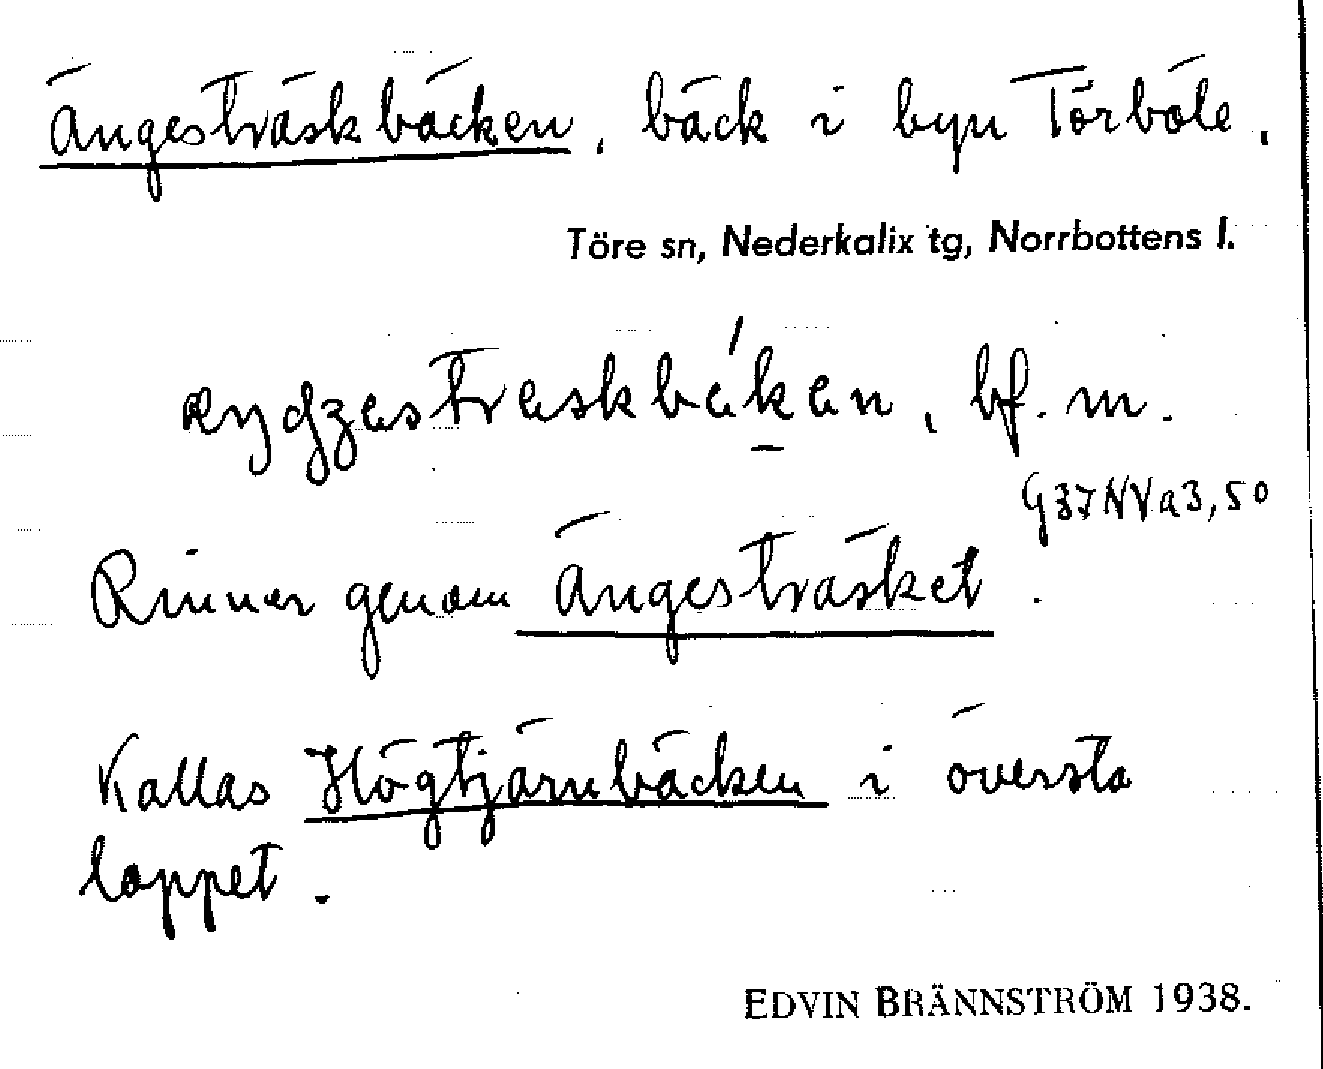 Ängesträskbäcken, bäck i byn Törböle.
Töre sn, Nederkalix tg, Norrbottens l.
bf. m.
G37NVa3,50
Rinner genom Ängesträsket.
Kallas Högtjärnbäcken i översta
loppet.
EDVIN BRÄNNSTRÖM 1938.